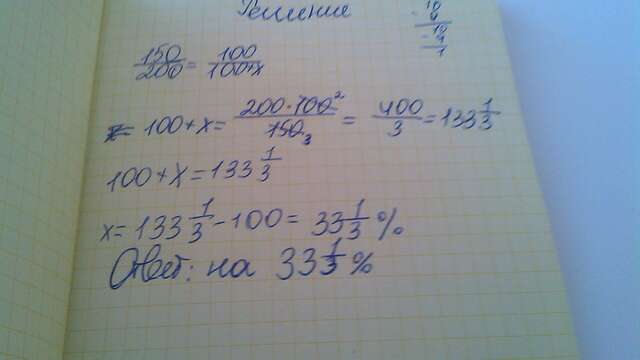 Решение
10
9
10
9
1
150/200 = 100/100+x
100+x = 200·100 2/150 3 = 400/3 = 133 1/3
100+x = 133 1/3
x = 133 1/3 - 100 = 33 1/3 %
Ответ: на 33 1/3 %